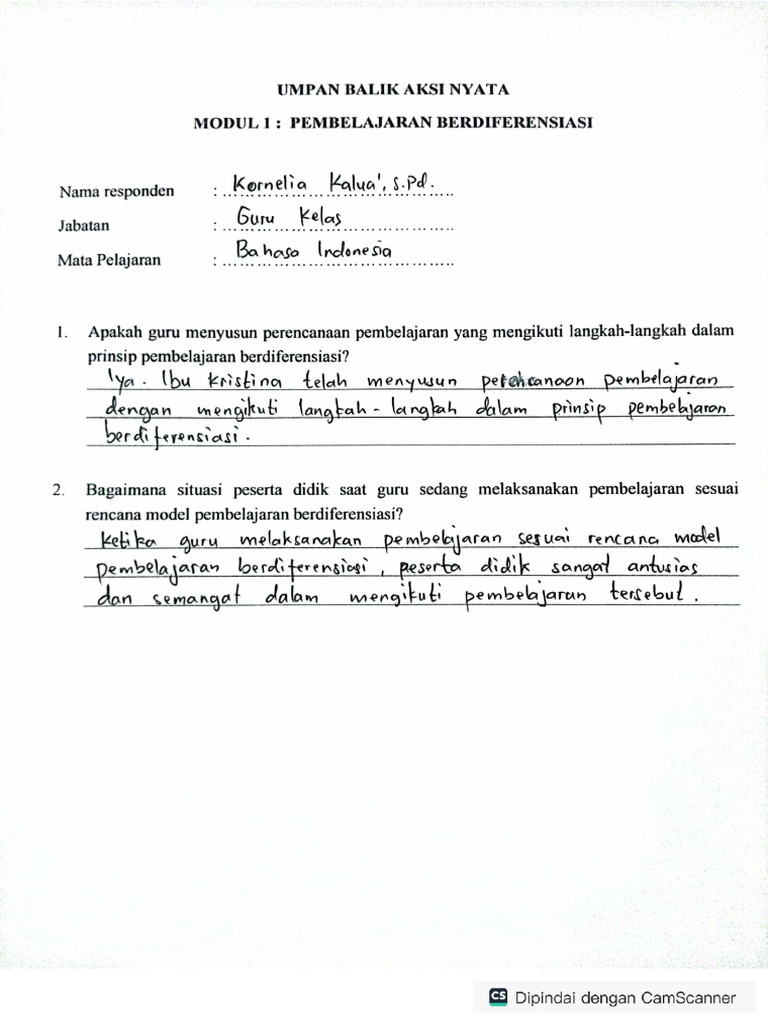 UMPAN BALIK AKSI NYATA
MODUL 1 : PEMBELAJARAN BERDIFERENSIASI
Nama responden : Kornelia Kalua', S.Pd.
Jabatan : Guru Kelas
Mata Pelajaran : Bahasa Indonesia
1. Apakah guru menyusun perencanaan pembelajaran yang mengikuti langkah-langkah dalam
prinsip pembelajaran berdiferensiasi?
Iya. Ibu Kristina telah menyusun perencanaan pembelajaran
dengan mengikuti langkah-langkah dalam prinsip pembelajaran
berdiferensiasi.
2. Bagaimana situasi peserta didik saat guru sedang melaksanakan pembelajaran sesuai
rencana model pembelajaran berdiferensiasi?
Ketika guru melaksanakan pembelajaran sesuai rencana model
pembelajaran berdiferensiasi, peserta didik sangat antusias
dan semangat dalam mengikuti pembelajaran tersebut.
CS Dipindai dengan CamScanner